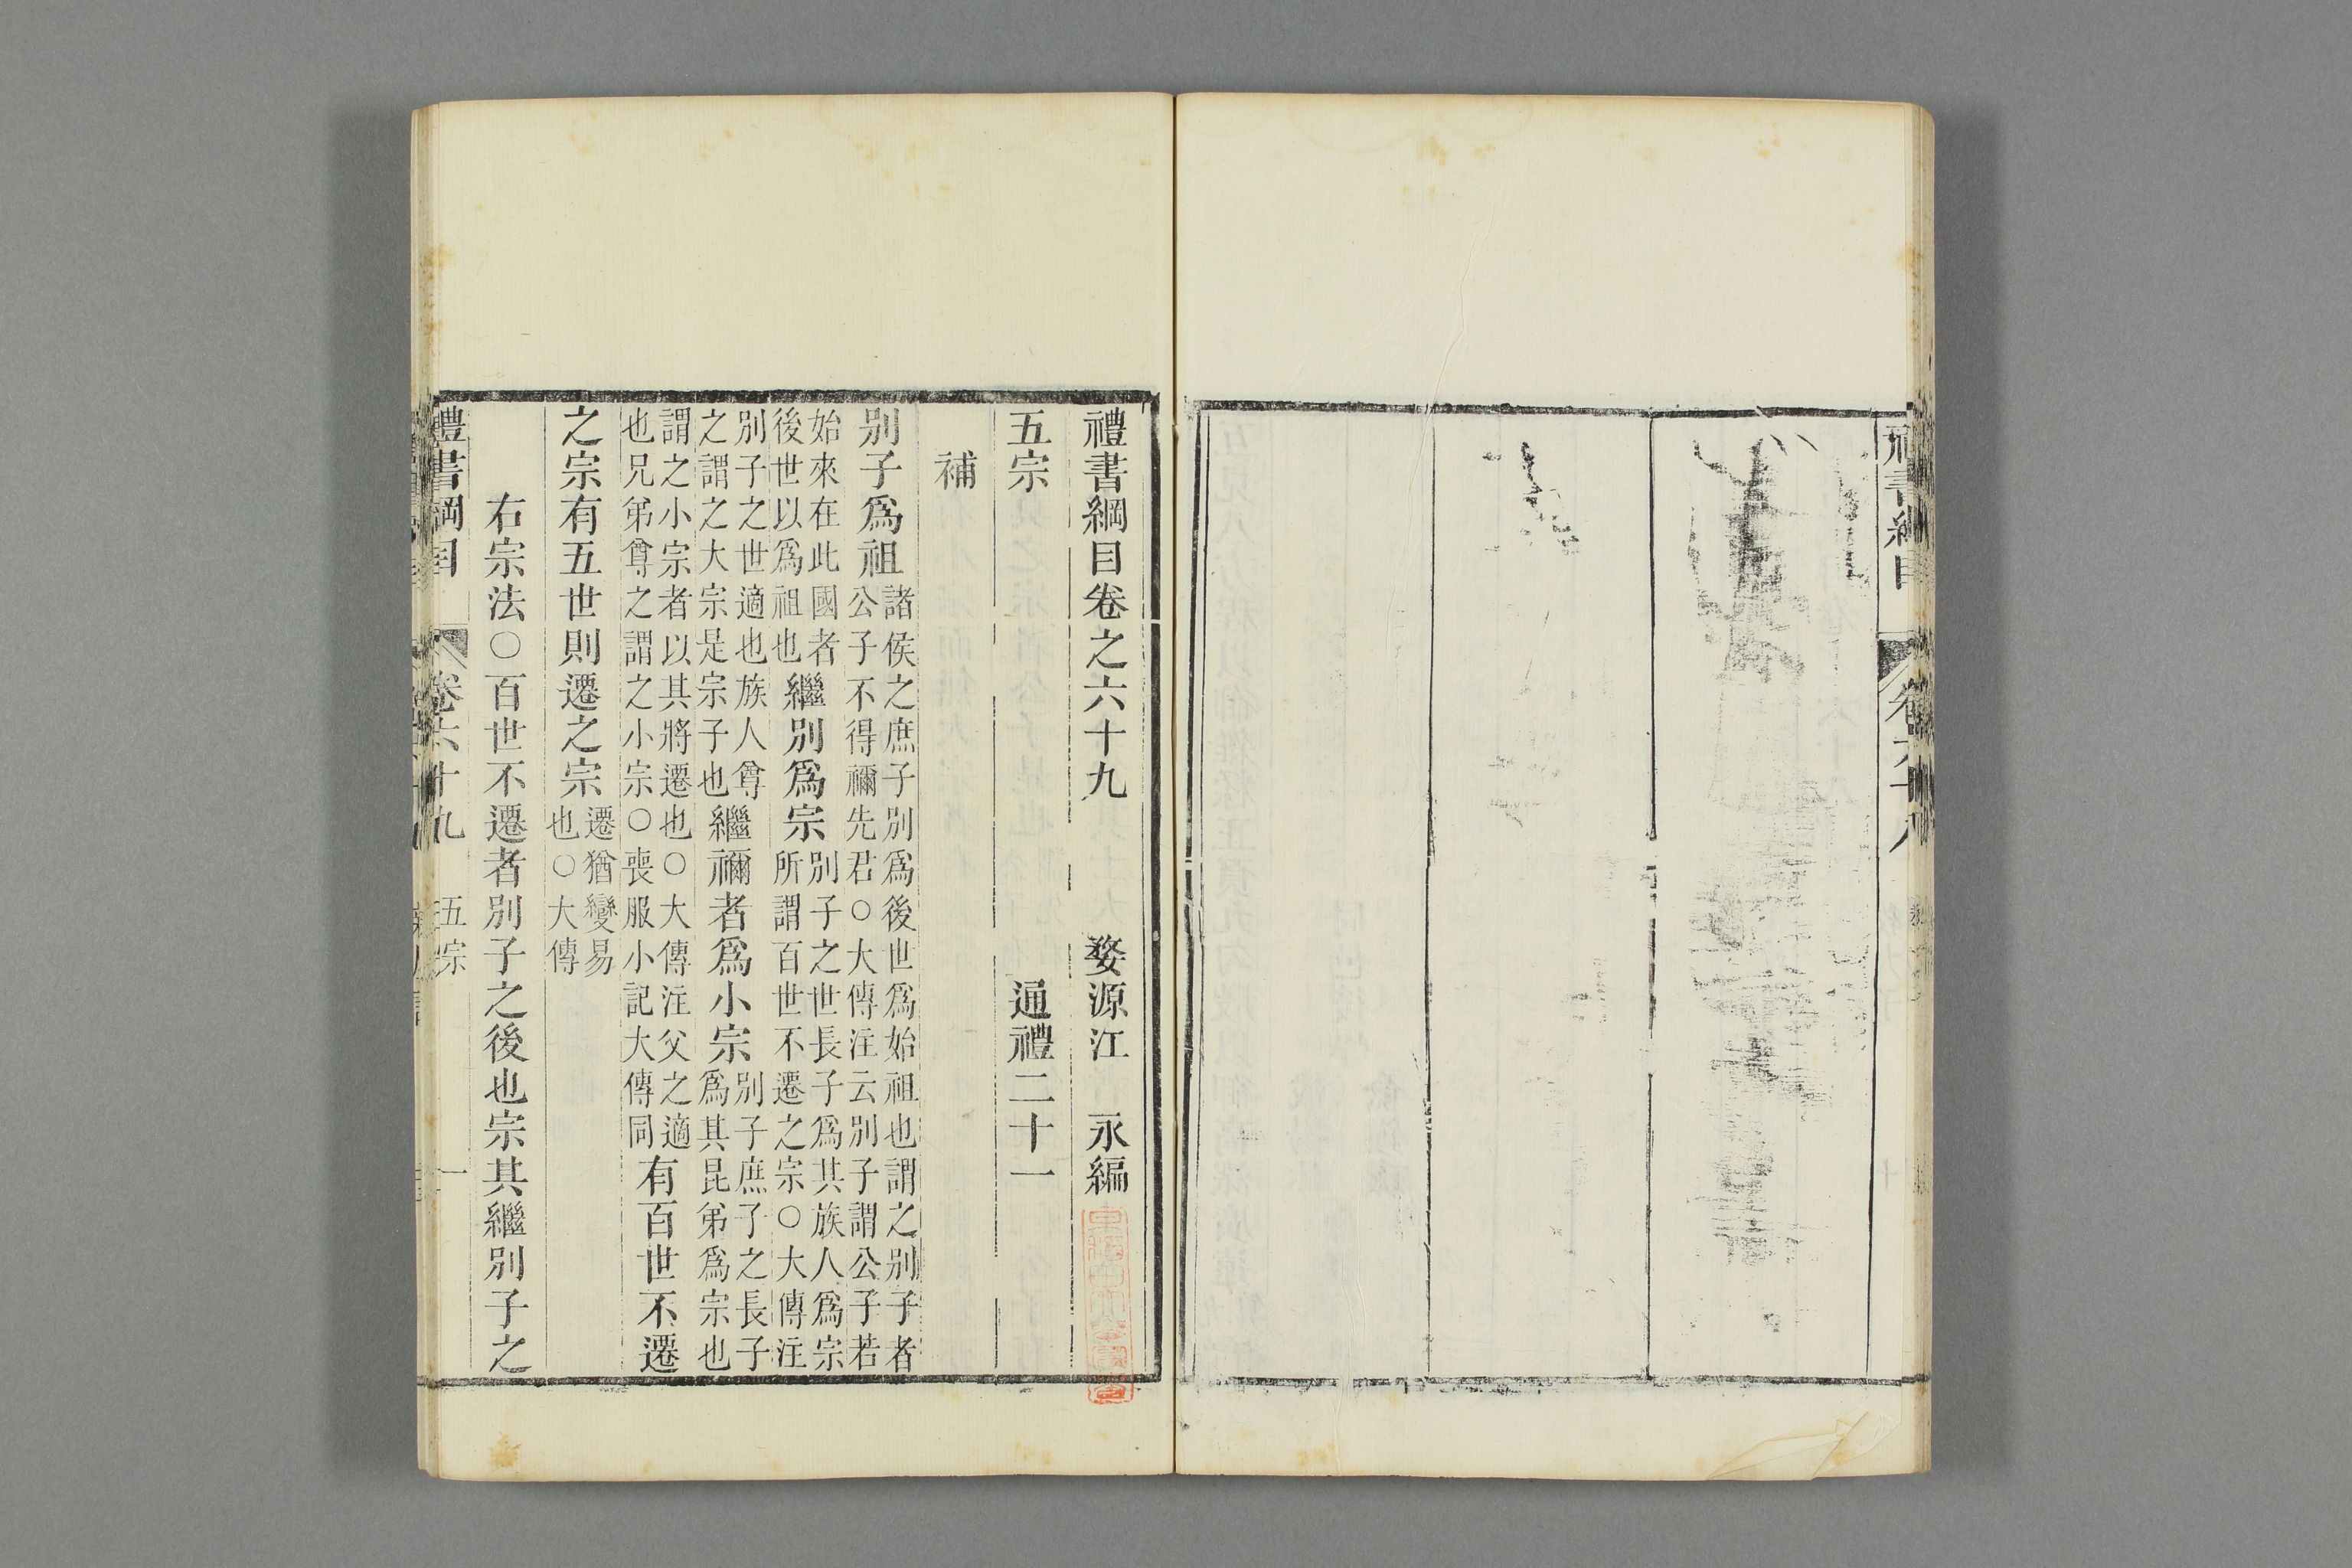 禮書綱目卷之六十九 婺源江 永編
五宗 通禮二十一
補
別子爲祖諸侯之庶子別爲後世爲始祖也謂之別子者
公子不得禰先君○大傳注云別子謂公子若
始來在此國者
後世以爲祖也繼別爲宗別子之世長子爲其族人爲宗
所謂百世不遷之宗○大傳注
別子之世適也族人尊
之謂之大宗是宗子也繼禰者爲小宗別子庶子之長子
爲其昆弟爲宗也
謂之小宗者以其將遷也○大傳注父之適
也兄弟尊之謂之小宗○喪服小記大傳同有百世不遷
之宗有五世則遷之宗遷猶變易
也○大傳
右宗法○百世不遷者別子之後也宗其繼別子之
禮書綱目 卷六十九 五宗 一